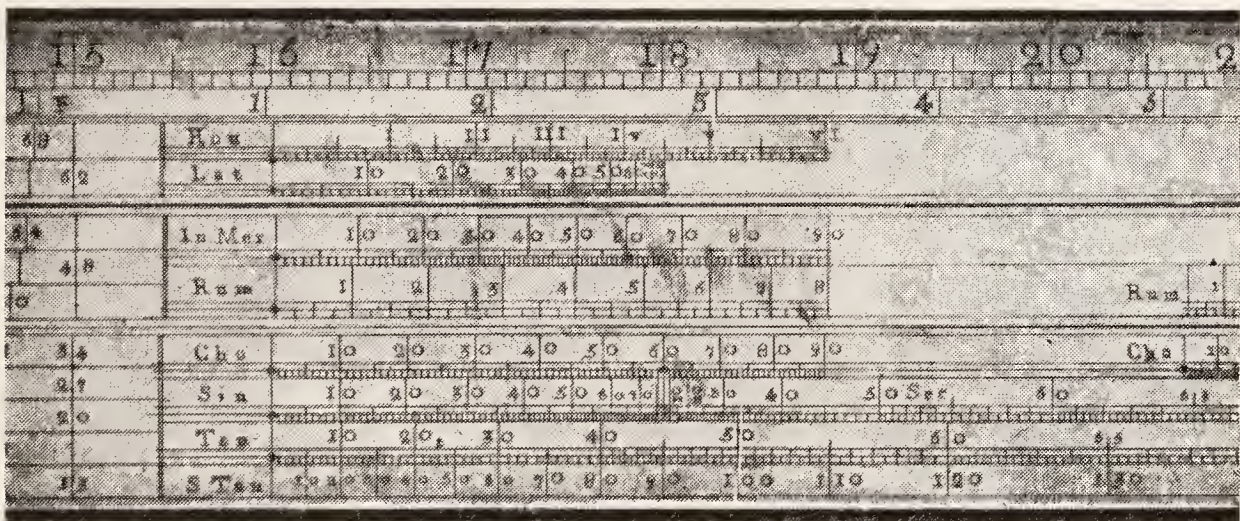 15 16 17 18 19 20 2
1 2 3 4 5
Hou I II III IV V VI
62 Lat 10 20 30 40 50
In Mer 10 20 30 40 50 60 70 80 90
48
Rum 1 2 3 4 5 6 7 8 Rum 1
0
34 Cho 10 20 30 40 50 60 70 80 90 Cho 10
27 Sin 10 20 30 40 50 60 70 30 40 50 Sec 60
20
Tan 10 20 30 40 50 60 65
S Tan 50 60 70 80 90 100 110 120 130